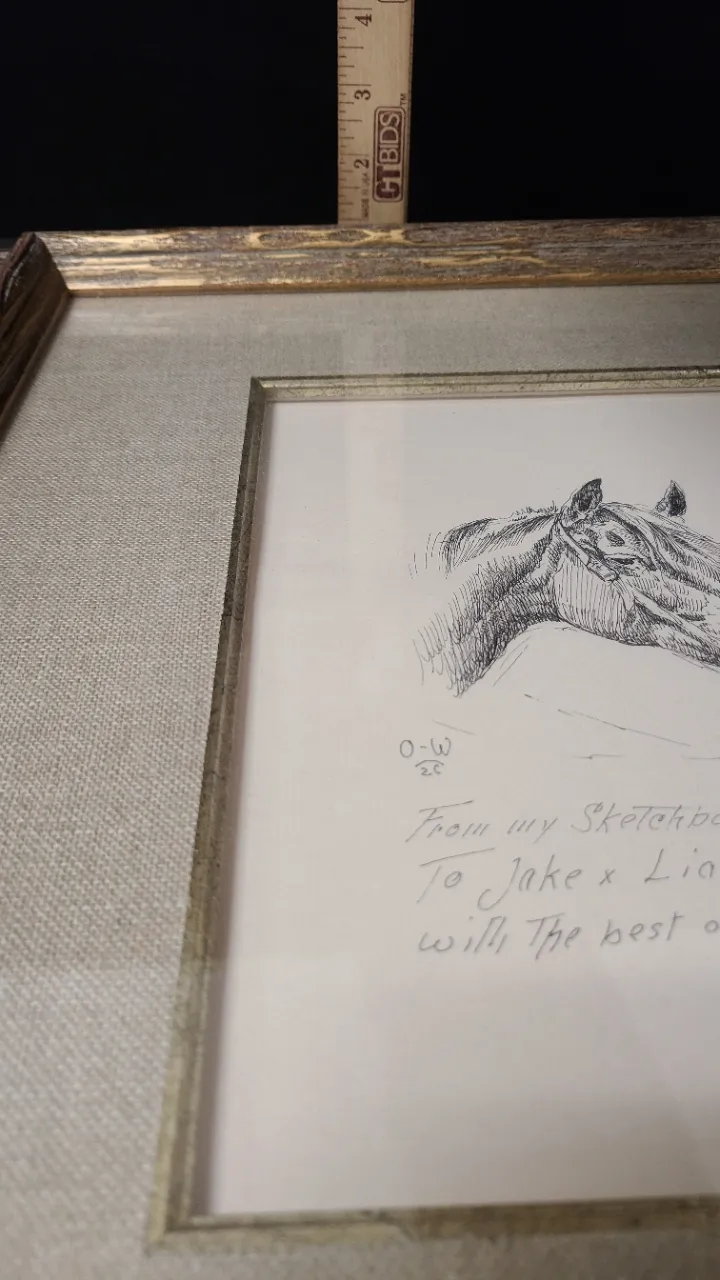 4
3
2
CTBIDS™
MADE IN USA
O-W
25
From my Sketchbo
To Jake x Lia
with The best o